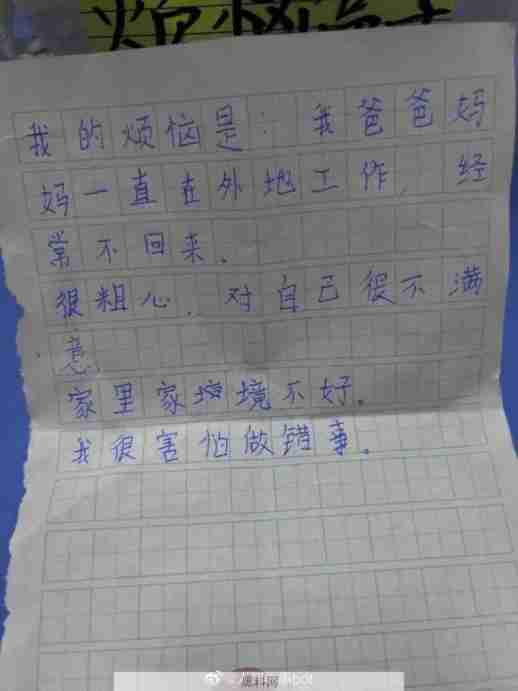 我的烦恼是：我爸爸妈
妈一直在外地工作，经
常不回来。
很粗心，对自己很不满
意
家里家境境不好。
我很害怕做错事。